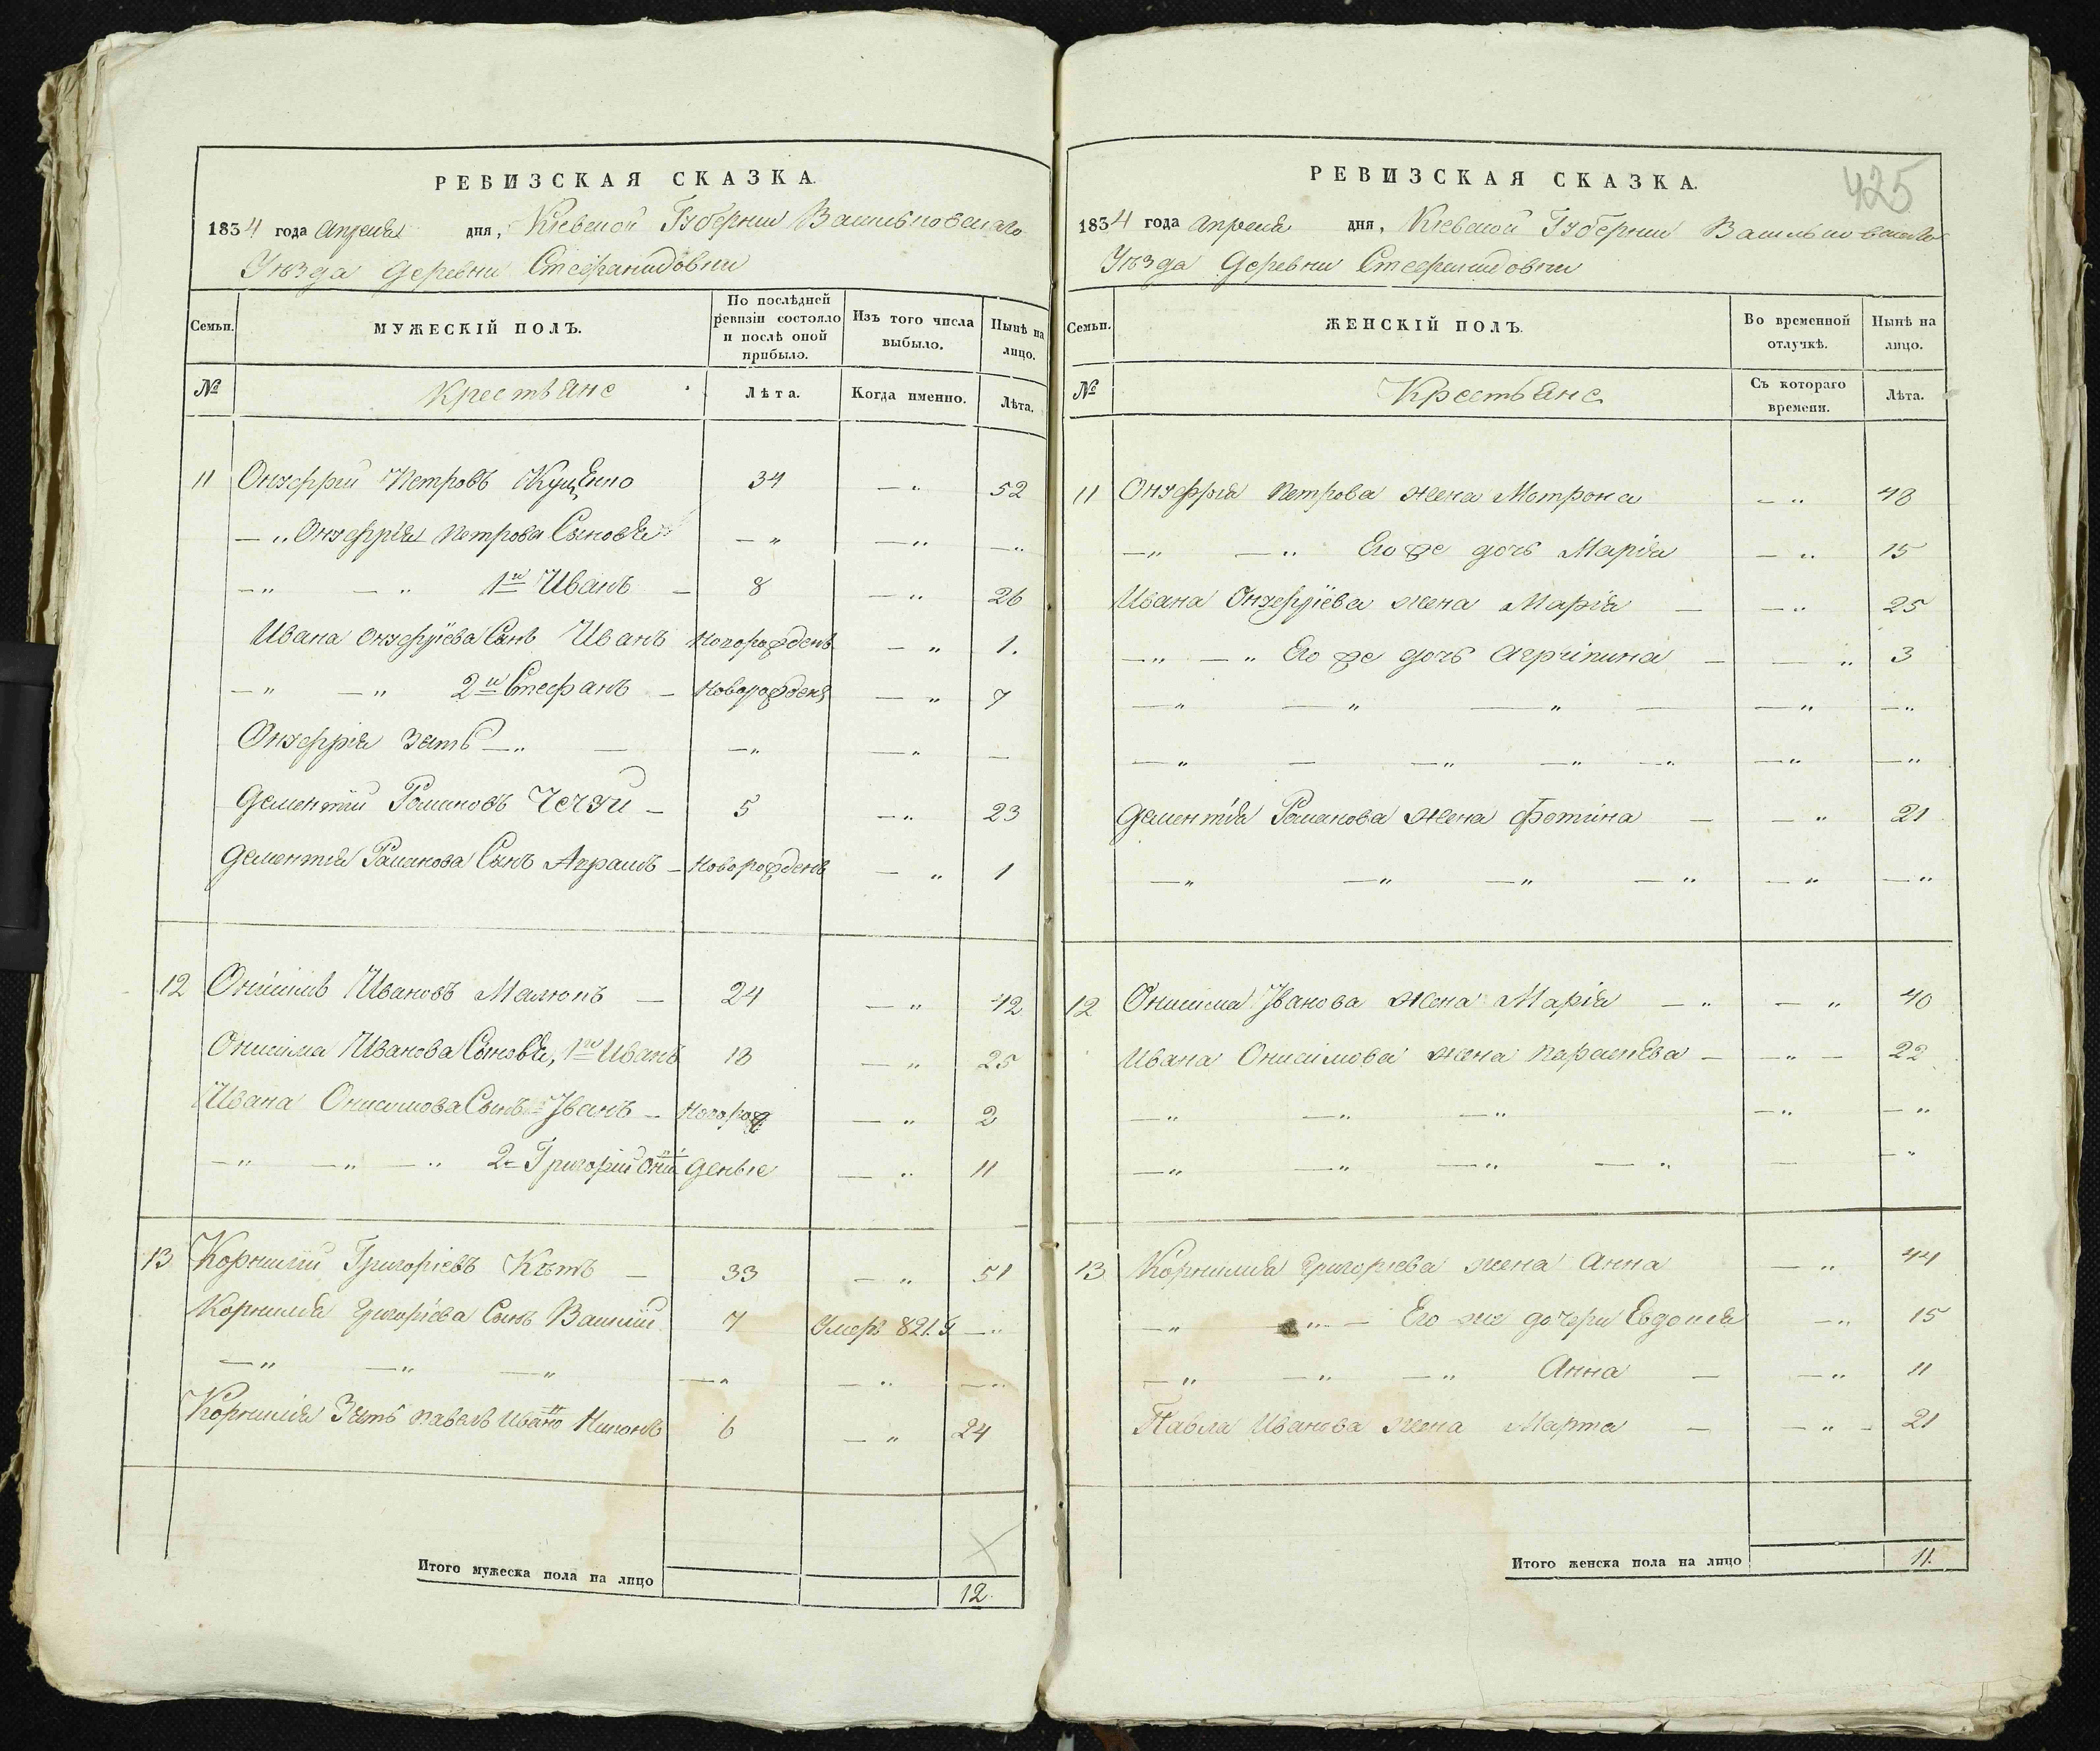 РЕВИЗСКАЯ СКАЗКА.
1834 года Апреля дня, Кіевской Губерніи Васильковскаго
Уѣзда Деревни Стефанидовки
Семьи. МУЖЕСКІЙ ПОЛЪ. По послѣдней ревизіи состояло и послѣ оной прибыло. Изъ того числа выбыло. Нынѣ на лицо.
№ Крестьяне Лѣта. Когда именно. Лѣта.
11 Онуфрій Петровъ Куценко 34 — " 52
— " Онуфрія Петрова Сыновья — " — " — "
— " — " 1й Иванъ — 8 — " 26
Ивана Онуфріева Сынъ Иванъ Новорожденъ — " 1.
— " — " 2й Стефанъ — Новорожденъ — " 7
Онуфрія Зять — " — — " — " —
Дементій Романовъ Чечуй — 5 — " 23
Дементія Романова Сынъ Абрамъ — Новорожденъ — " 1
12 Онисимъ Ивановъ Малюкъ — 24 — " 42
Онисима Иванова Сыновья, 1й Иванъ 18 — " 25
Ивана Онисимова Сынъ Іванъ — Новорож — " 2
— " — " — " 2й Григорій Они деные — " 11
13 Корнилій Григоріевъ Кѣтъ — 33 — " 51
Корнилія Григоріева Сынъ Василій 7 Умеръ 821. г. — "
— " — " — " — " — " — "
Корнилія Зять Павелъ Ивано 6 — " 24
Итого мужеска пола на лицо 12.
РЕВИЗСКАЯ СКАЗКА.
425
1834 года Апреля дня, Кіевской Губерніи Васильковскаго
Уѣзда Деревни Стефанидовки
Семьи. ЖЕНСКІЙ ПОЛЪ. Во временной отлучкѣ. Нынѣ на лицо.
№ Крестьяне Съ котораго времени. Лѣта.
11 Онуфрія Петрова жена Мотрона — " 48
— " — " Его же дочь Марія — " 15
Ивана Онуфріева жена Марія — — " 25
— " — " Его же дочь Агрипина — — " 3
— " — " — " — — " — "
— " — — " — " — " — " — "
Дементія Романова жена Фотина — — " 21
— " — " — " — " — " — "
12 Онисима Іванова жена Марія — " — " 40
Ивана Онисимова жена Параскева — — " — 22
— " — " — " — " — "
— " — " — " — " — — "
13 Корнилія Григоріева жена Анна — " 44
— " — " — Его же дочери Евдокія — " 15
— " — " — " Анна — — " 11
Павла Иванова жена Марта — — " — 21
Итого женска пола на лицо 11.